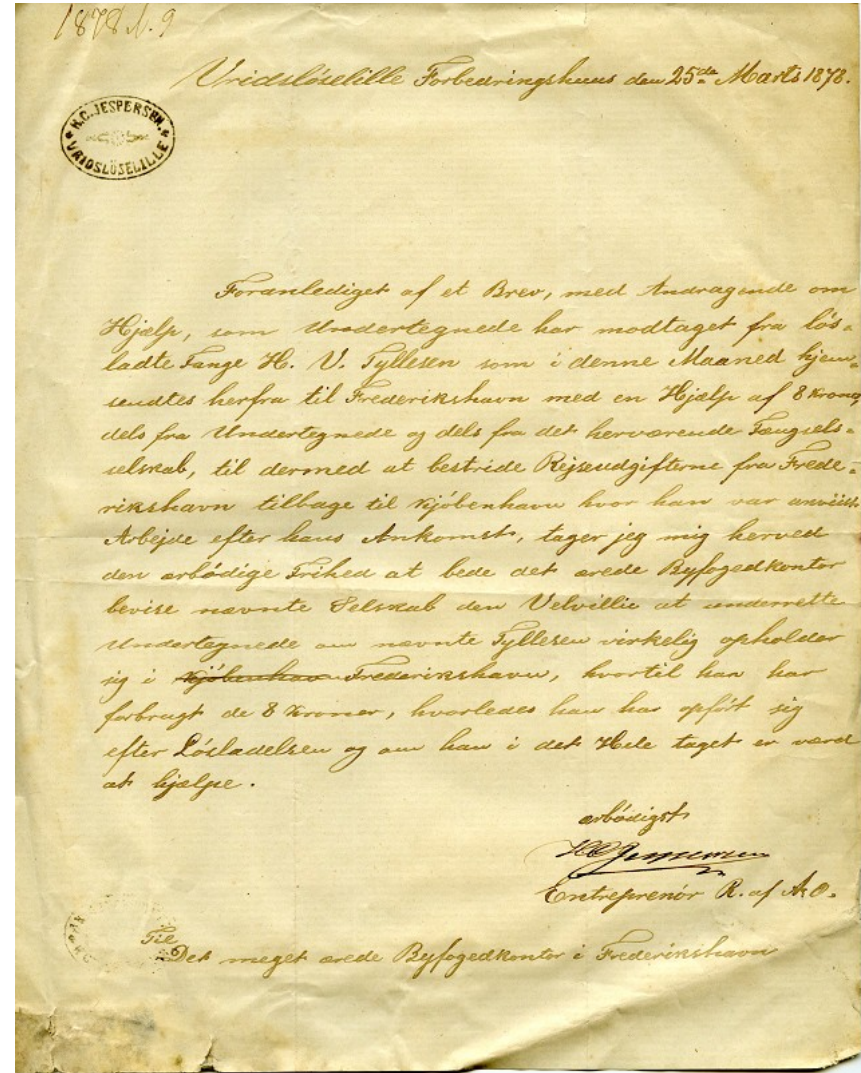 1878 A. 9
Vridslöselille Forbedringshuus den 25de Marts 1878.
* H.C. JESPERSEN. * VRIDSLÖSELILLE
Foranlediget af et Brev, med Andragende om
Hjælp, som Undertegnede har modtaget fra lös-
ladte Fange H. V. Tyllesen som i denne Maaned hjem-
sendtes herfra til Frederikshavn med en Hjælp af 8 Kroner,
dels fra Undertegnede og dels fra det herværende Fængsels-
selskab, til dermed at bestride Rejseudgifterne fra Frede-
rikshavn tilbage til Kjöbenhavn hvor han var anviist
Arbejde efter hans Ankomst, tager jeg mig herved
den ærbödige Frihed at bede det ærede Byfogedkontor
bevise nævnte Selskab den Velvillie at underrette
Undertegnede om nævnte Tyllesen virkelig opholder
sig i Kjöbenhavn Frederikshavn, hvortil han har
forbrugt de 8 Kroner, hvorledes han har opfört sig
efter Lösladelsen og om han i det Hele taget er værd
at hjælpe.
ærbödigst
HC Jespersen
Entreprenör R. af A. O.
Til
Det meget ærede Byfogedkontor i Frederikshavn